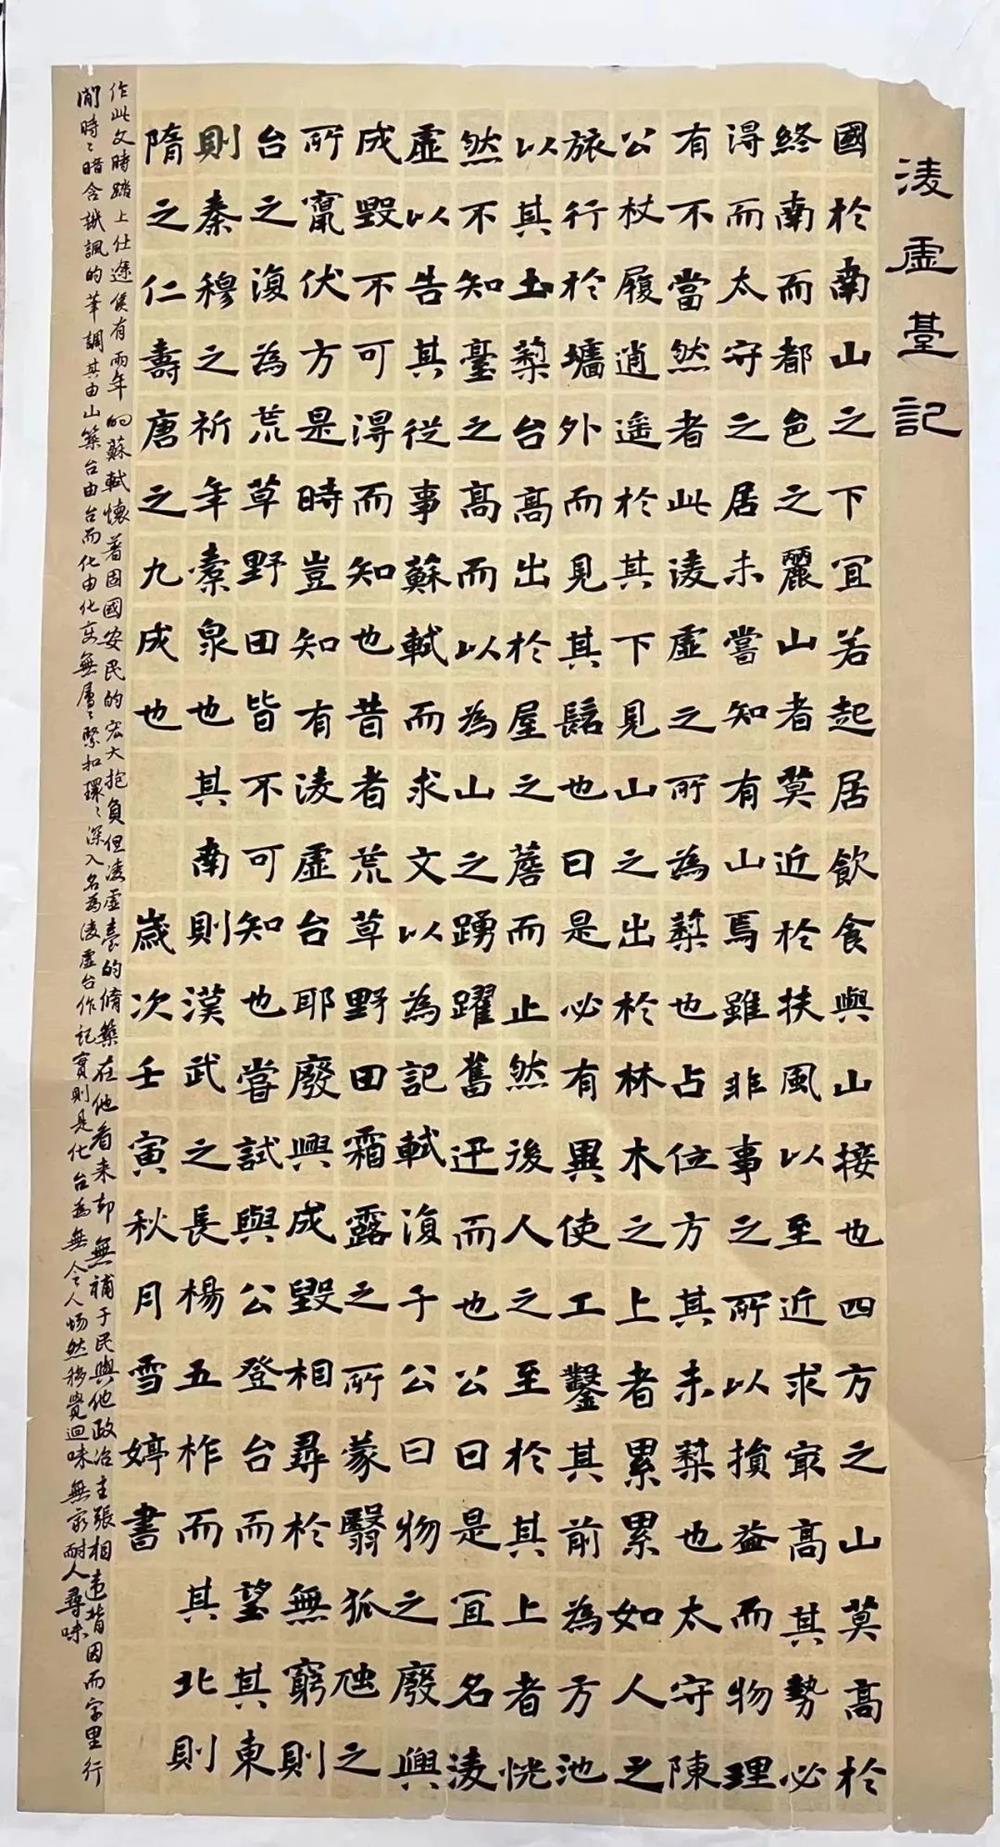 淩虛臺記
國於南山之下宜若起居飲食與山接也四方之山莫高於
終南而都邑之麗山者莫近於扶風以至近求最高其勢必
得而太守之居未嘗知有山焉雖非事之所以損益而物理
有不當然者此淩虛之所為築也占位方其未築也太守陳
公杖履逍遙於其下見山之出於林木之上者累累如人之
旅行於墻外而見其髻也曰是必有異使工鑿其前為方池
以其土築台高出於屋之簷而止然後人之至於其上者恍
然不知臺之高而以為山之踴躍奮迅而也公曰是宜名淩
虛以告其從事蘇軾而求文以為記軾復于公曰物之廢興
成毀不可得而知也昔者荒草野田霜露之所蒙翳狐虺之
所竄伏方是時豈知有淩虛台耶廢興成毀相尋於無窮則
台之復為荒草野田皆不可知也嘗試與公登台而望其東
則秦穆之祈年橐泉也其南則漢武之長楊五柞而其北則
隋之仁壽唐之九成也 歲次壬寅秋月雪婷書
作此文時踏上仕途僅有兩年的蘇軾懷著固國安民的宏大抱負但淩虛臺的脩築在他看来却無補于民與他政治主張相違背因而字里行
間時時暗含譏諷的筆調其由山築台由台而化由化無層層緊扣環環深入名為淩虛台作記實則是化台為無令人惕然覺迴味無窮耐人尋味